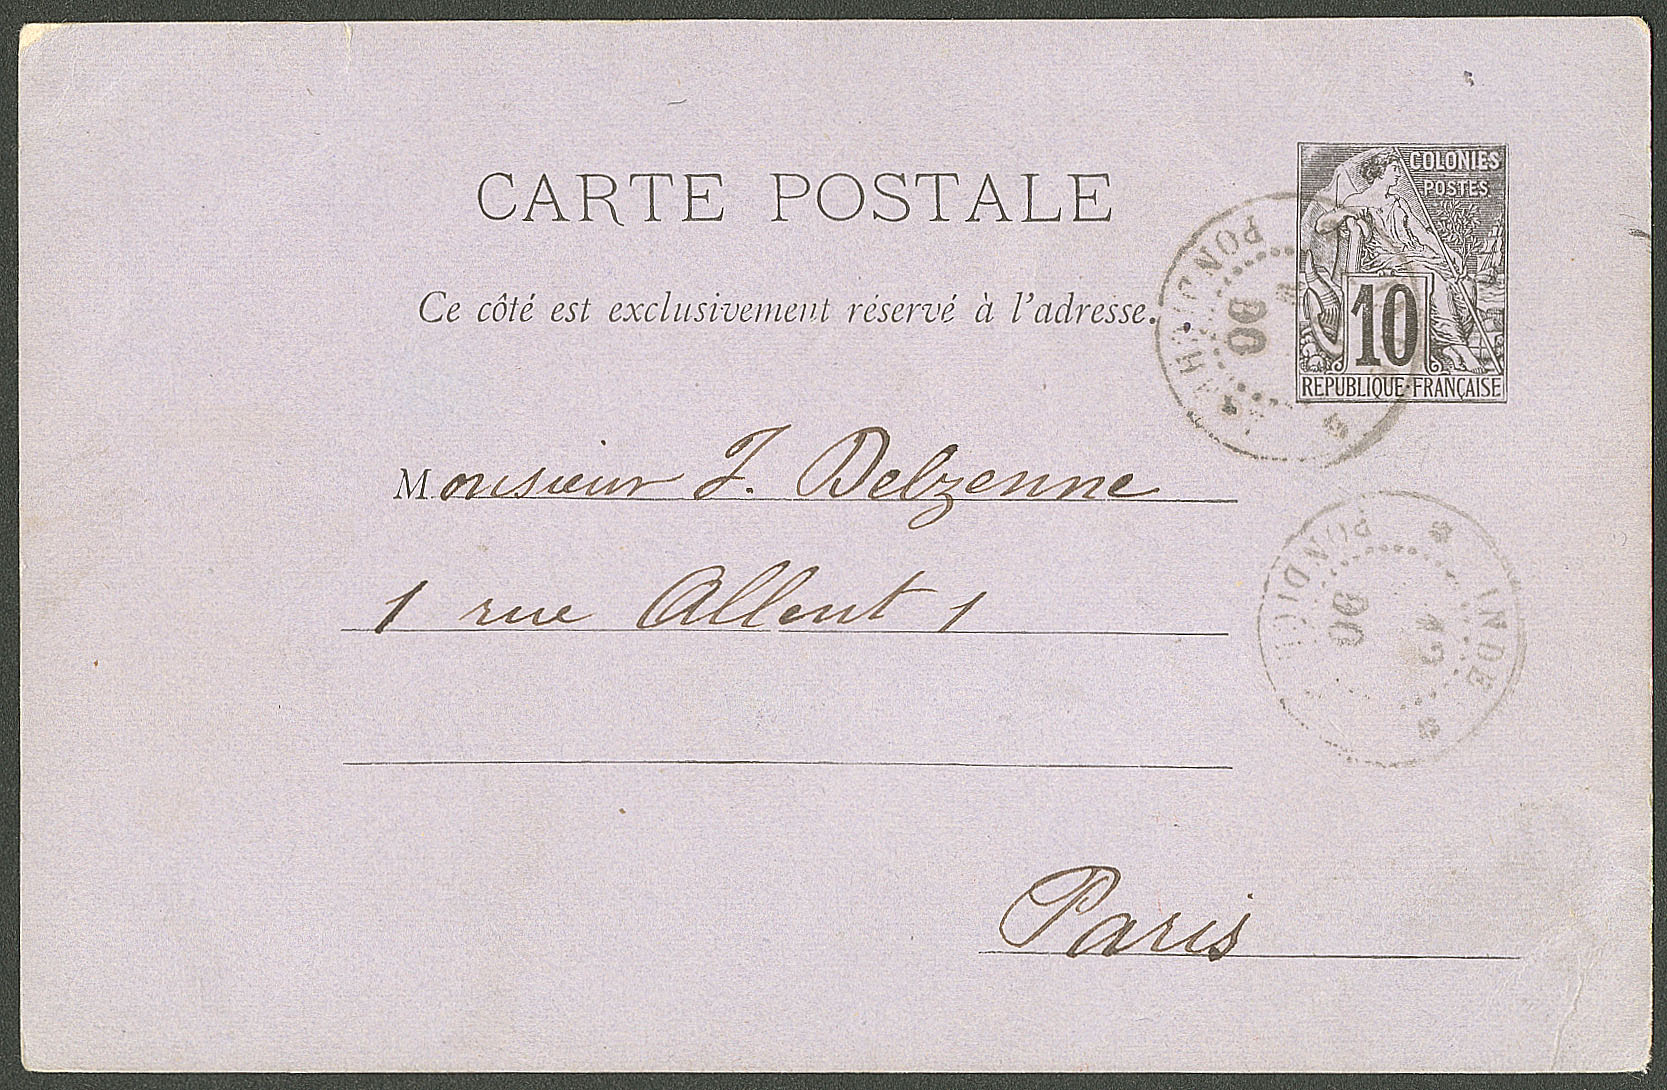 CARTE POSTALE
COLONIES
POSTES
10
REPUBLIQUE FRANÇAISE
Ce côté est exclusivement réservé à l'adresse.
PONDICH
90
Monsieur J. Delzenne
1 rue Allent 1
PONDICH
INDE
90
Paris